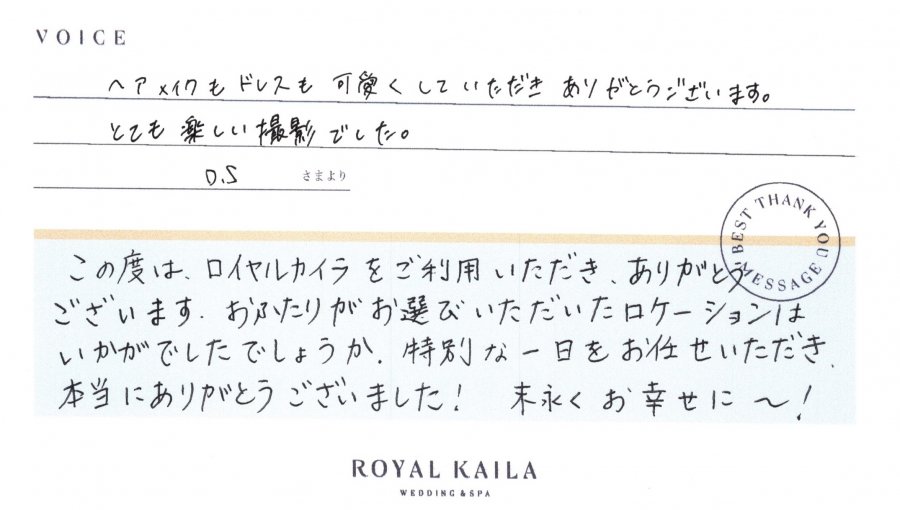 VOICE
ヘアメイクもドレスも可愛くしていただきありがとうございます。
とても楽しい撮影でした。
D.S さまより
BEST THANK YOU MESSAGE
この度は、ロイヤルカイラをご利用いただき、ありがとう
ございます。おふたりがお選びいただいたロケーションは
いかがでしたでしょうか。特別な一日をお任せいただき、
本当にありがとうございました! 末永くお幸せに〜!
ROYAL KAILA
WEDDING & SPA